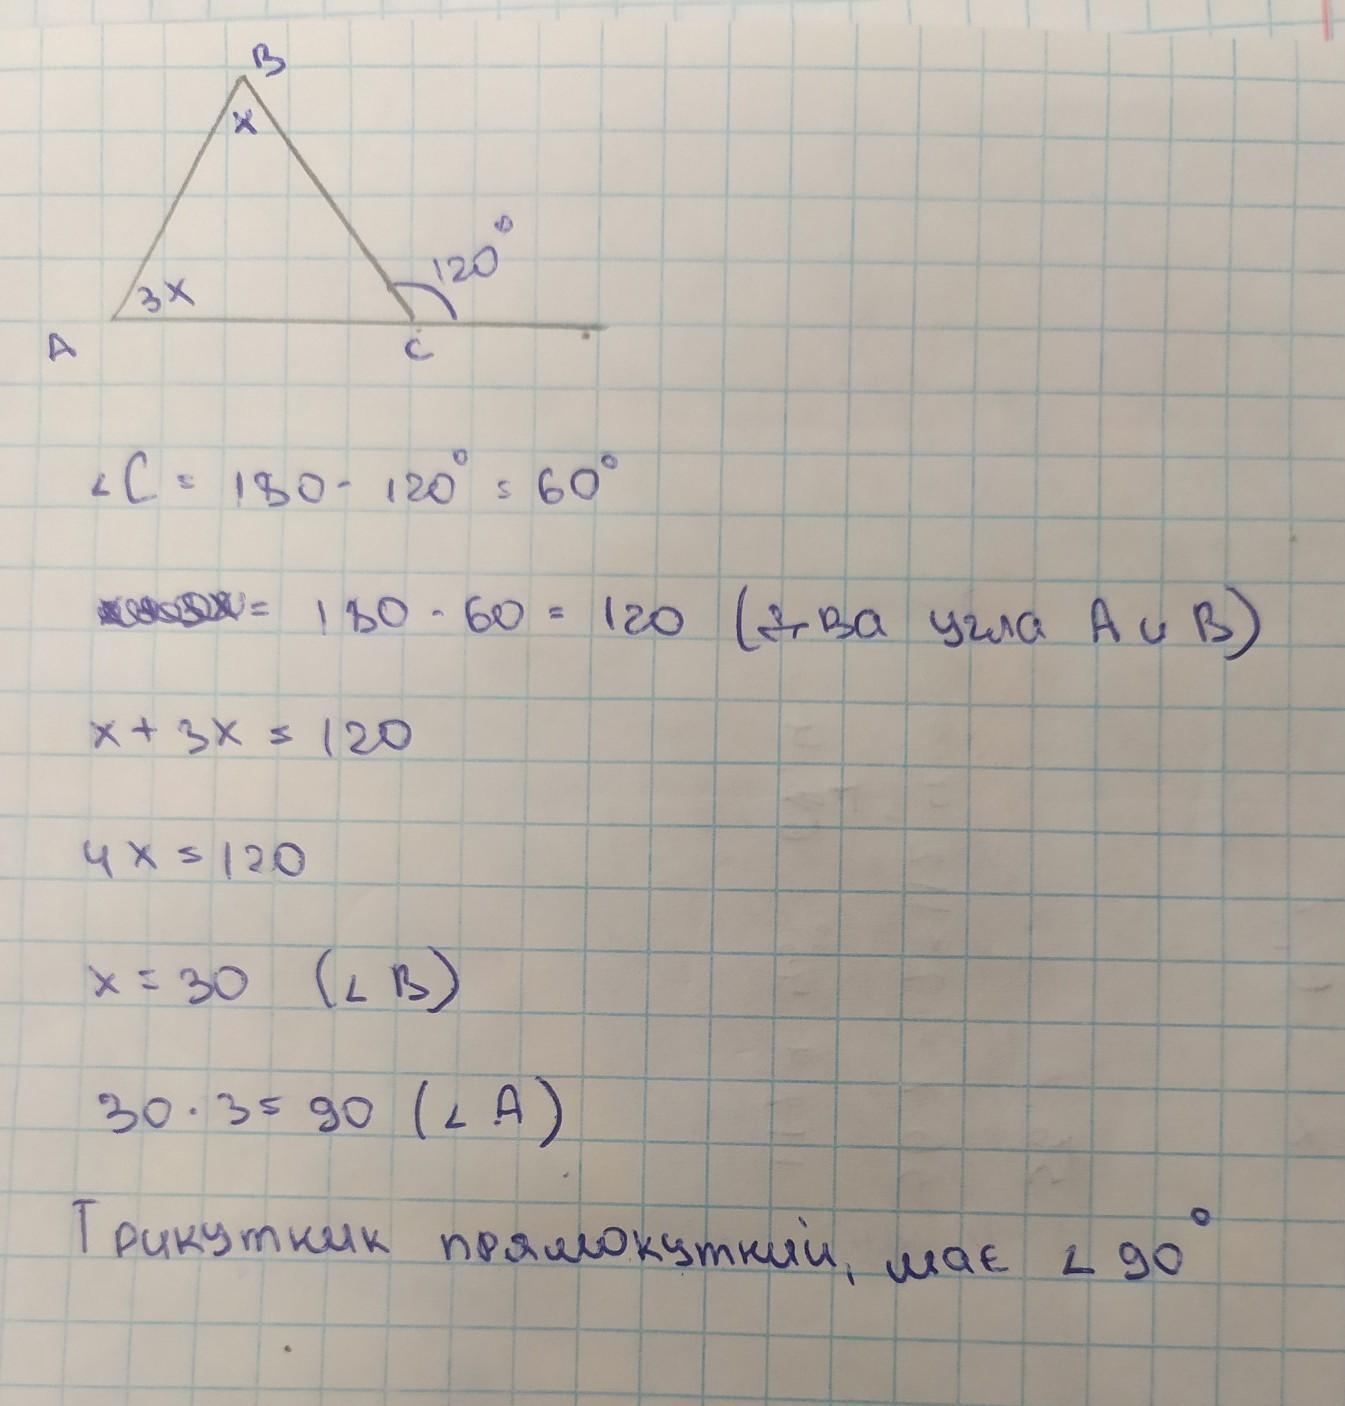 B
x
120°
3x
A
C
∠C = 180 - 120° = 60°
= 180 - 60 = 120 (два угла A и B)
x + 3x = 120
4x = 120
x = 30 (∠B)
30 · 3 = 90 (∠A)
Трикутник прямокутний, має ∠ 90°